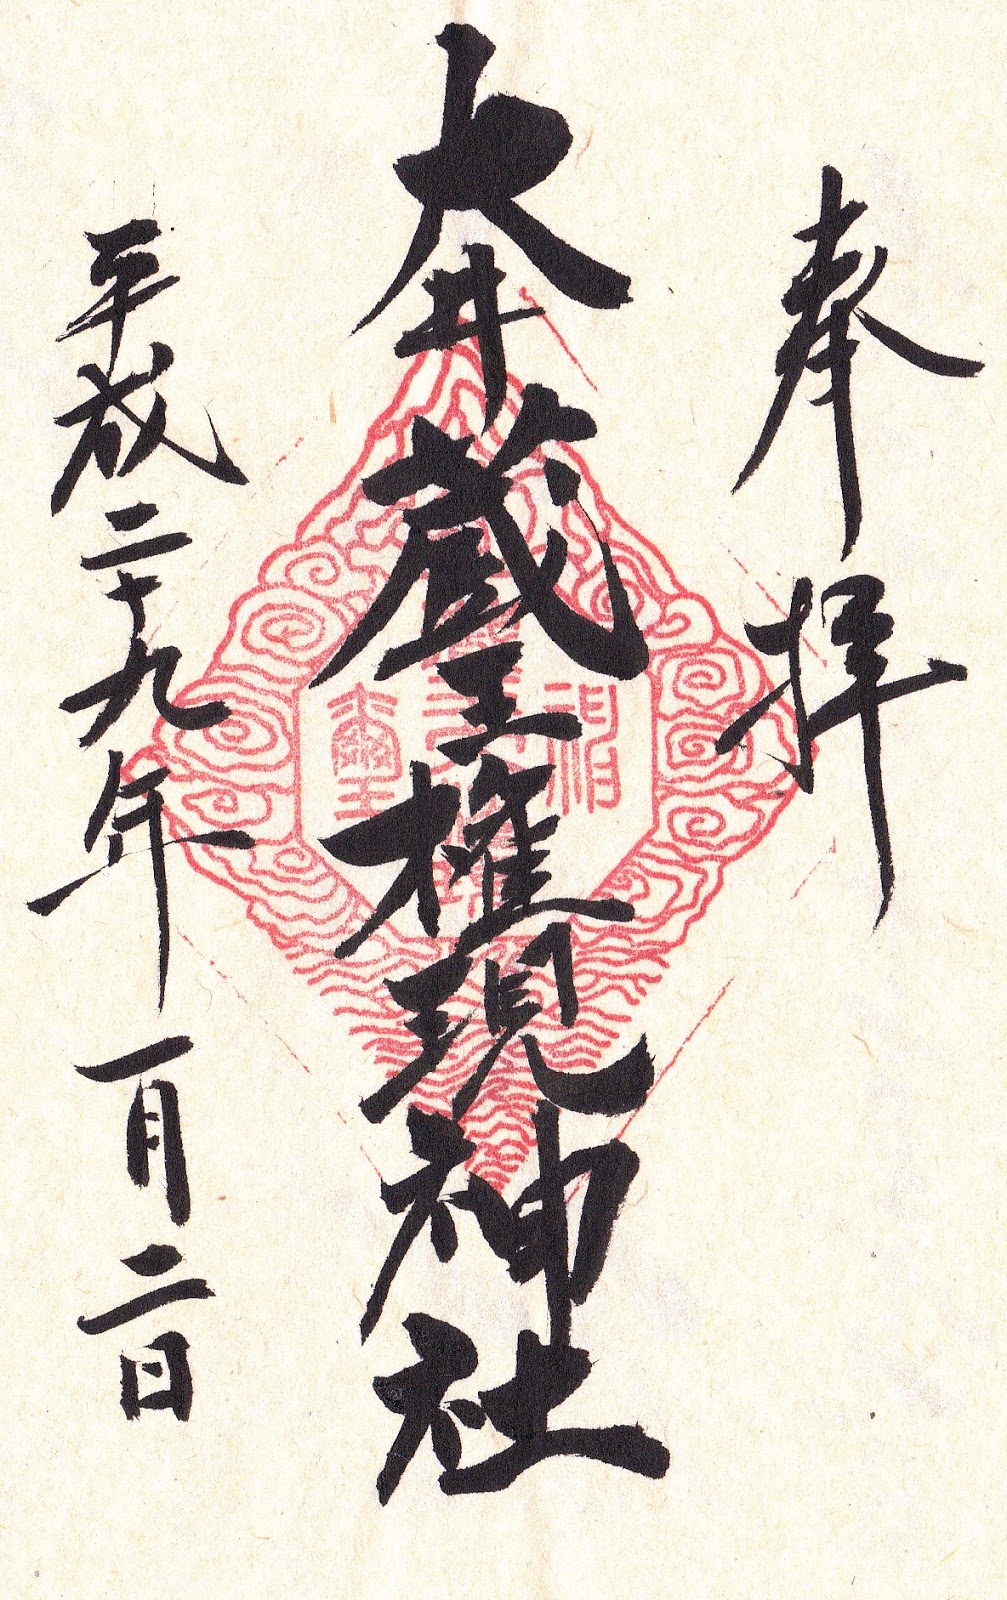 奉拝
大井蔵王権現神社
平成二十九年一月二日